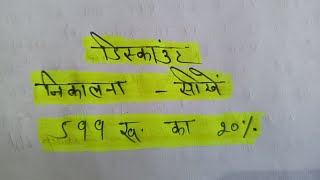 डिस्काउंट
निकालना - सीखें
599 रू. का 20%